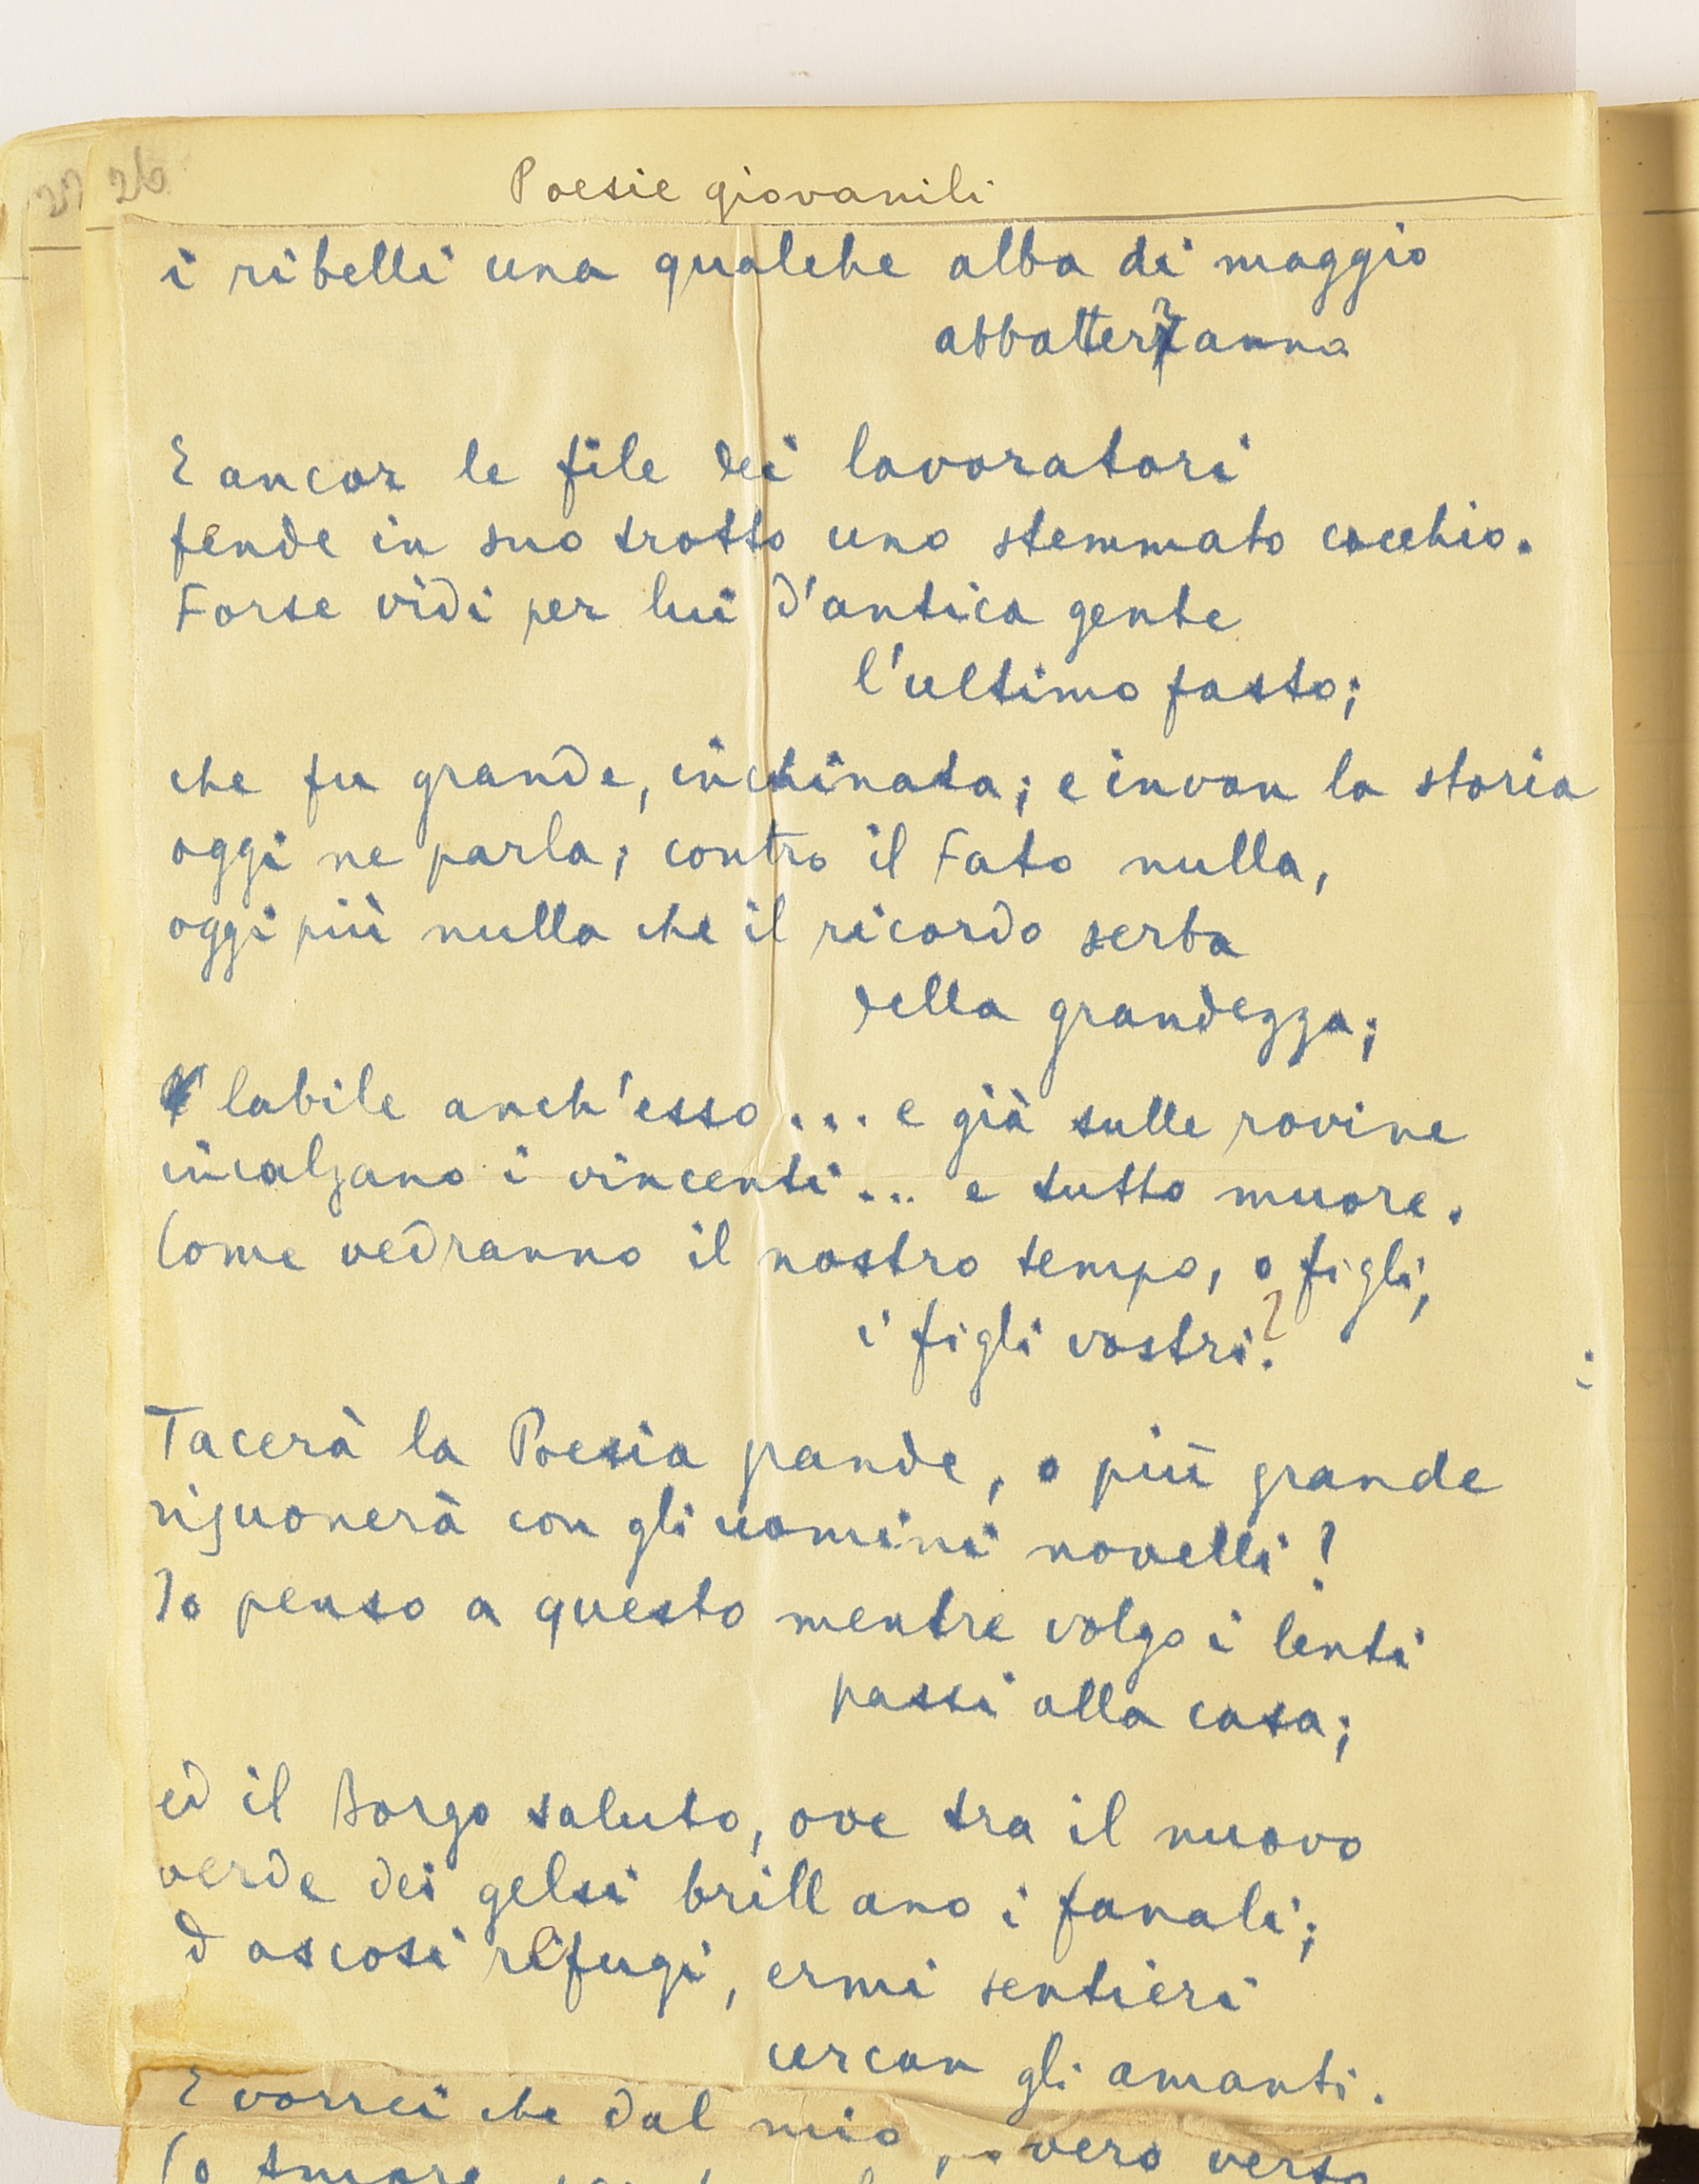 27 26
Poesie giovanili
i ribelli una qualche alba di maggio
abbatteranno
E ancor le file dei lavoratori
fende in suo trotto uno stemmato cocchio.
Forse vidi per lui d'antica gente
l'ultimo fasto;
che fu grande, inchinata; e invan la storia
oggi ne parla; contro il Fato nulla,
oggi più nulla che il ricordo serba
della grandezza;
labile anch'esso... e già sulle rovine
incalzano i vincenti... e tutto muore.
Come vedranno il nostro tempo, o figli,
i figli vostri?
Tacerà la Poesia grande, o più grande
risuonerà con gli uomini novelli?
Io penso a questo mentre volgo i lenti
passi alla casa;
ed il Borgo saluto, ove tra il nuovo
verde dei gelsi brillano i fanali;
d ascosi rifugi, ermi sentieri
cercan gli amanti.
E vorrei che dal mio vero verso